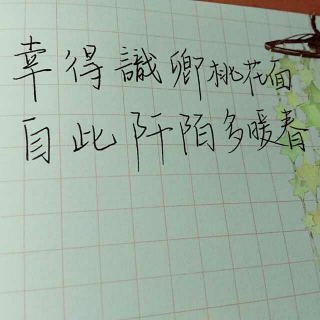 幸得識卿桃花面
自此阡陌多暖春